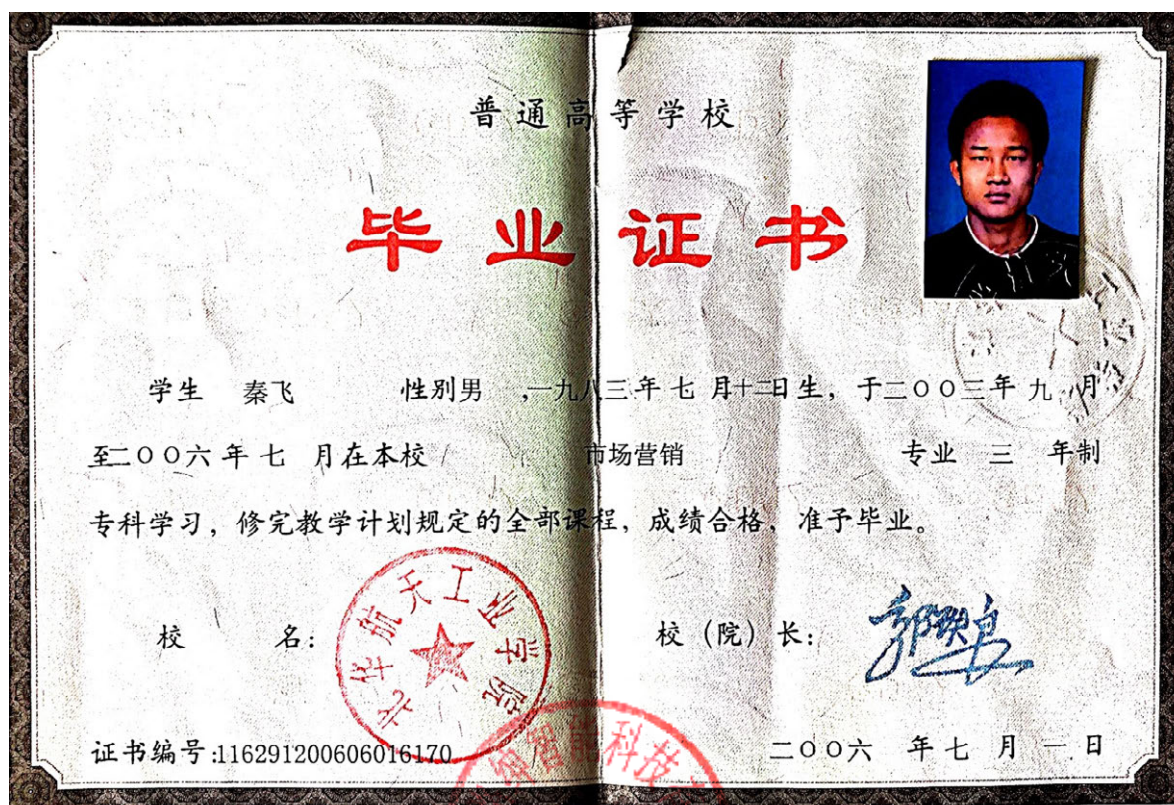 普通高等学校
毕业证书
学生 秦飞 性别男 ,一九八三年七月十二日生，于二〇〇三年九月
至二〇〇六年七月在本校 市场营销 专业 三 年制
专科学习，修完教学计划规定的全部课程，成绩合格，准予毕业。
校 名：
北华航天工业学院
校（院）长：
证书编号:116291200606016170
二〇〇六 年七月一日
科技